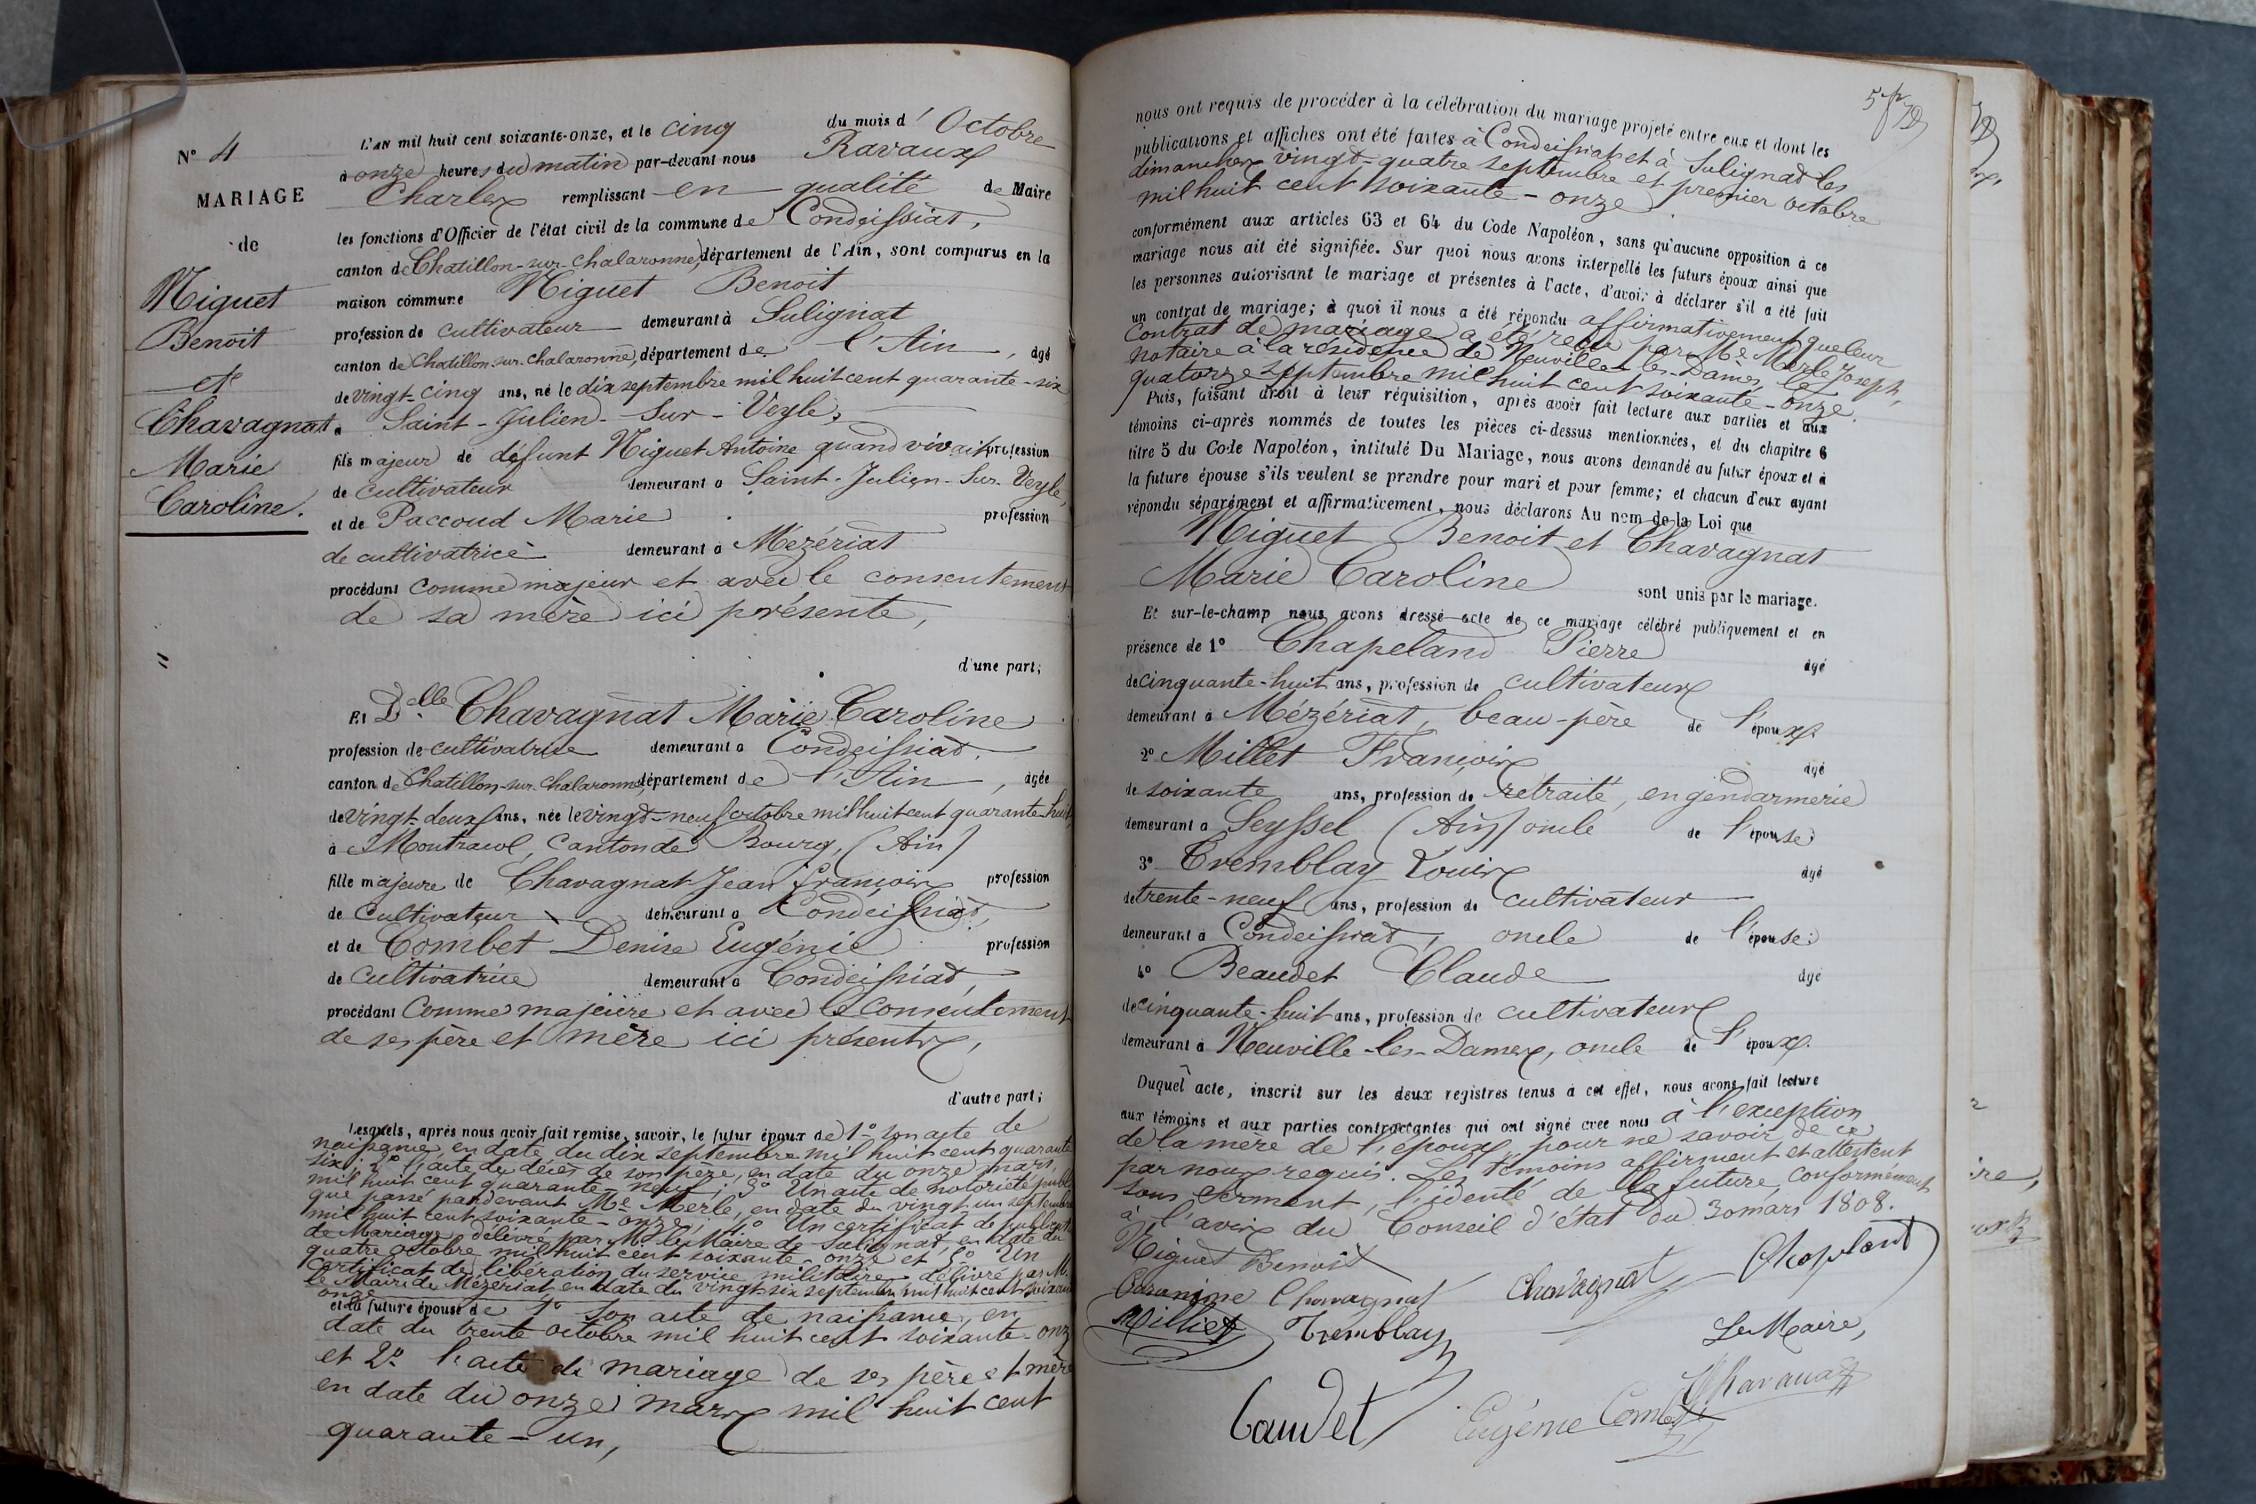 N° 4
MARIAGE
de
Niguet
Benoit
et
Chavagnat
Marie
Caroline.
L'AN mil huit cent soixante-onze, et le cinq du mois d'Octobre
à onze heures du matin par-devant nous Ravaux
Charles remplissant en qualité de Maire
les fonctions d'Officier de l'état civil de la commune de Condeissiat,
canton de Chatillon-sur-Chalaronne, département de l'Ain, sont comparus en la
maison commune Niguet Benoit
profession de cultivateur demeurant à Sulignat
canton de Chatillon-sur-Chalaronne, département de l'Ain, âgé
de vingt-cinq ans, né le dix septembre mil huit cent quarante-six
à Saint-Julien-Sur-Veyle,
fils majeur de défunt Niguet Antoine quand vivait profession
de cultivateur demeurant à Saint-Julien-Sur-Veyle,
et de Paccoud Marie profession
de cultivatrice demeurant à Mézériat
procédant comme majeur et avec le consentement
de sa mère ici présente,
d'une part;
Et Delle Chavagnat Marie Caroline
profession de cultivatrice demeurant à Condeissiat,
canton de Chatillon-sur-Chalaronne, département de l'Ain, âgée
de vingt-deux ans, née le vingt-neuf octobre mil huit cent quarante-huit
à Montracol, canton de Bourg, (Ain)
fille majeure de Chavagnat Jean François profession
de cultivateur demeurant à Condeissiat,
et de Combet Denise Eugénie profession
de cultivatrice demeurant à Condeissiat,
procédant comme majeure et avec le consentement
de ses père et mère ici présents,
d'autre part;
Lesquels, après nous avoir fait remise, savoir, le futur époux de 1° son acte de
naissance, en date du dix septembre mil huit cent quarante
six; 2° l'acte de décès de son père, en date du onze mars,
mil huit cent quarante-neuf; 3° Un acte de notoriété publi
que passé pardevant Me Merle, en date du vingt-un septembre
mil huit cent soixante-onze; 4° Un certificat de publicat
de Mariage délivré par Mr le Maire de Sulignat, en date du
quatre octobre mil huit cent soixante-onze et 5° Un
certificat de libération du service militaire délivré par M.
le Maire de Mézériat, en date du vingt-six septembre mil huit cent soixante
onze
et la future épouse de 1° son acte de naissance, en
date du trente octobre mil huit cent soixante-onze
et 2° l'acte de mariage de ses père et mère
en date du onze mars mil huit cent
quarante-un,
nous ont requis de procéder à la célébration du mariage projeté entre eux et dont les
publications et affiches ont été faites à Condeissiat et à Sulignat les
dimanches vingt-quatre septembre et premier octobre
mil huit cent soixante-onze
conformément aux articles 63 et 64 du Code Napoléon, sans qu'aucune opposition à ce
mariage nous ait été signifiée. Sur quoi nous avons interpellé les futurs époux ainsi que
les personnes autorisant le mariage et présentes à l'acte, d'avoir à déclarer s'il a été fait
un contrat de mariage; à quoi il nous a été répondu affirmativement que leur
contrat de mariage a été reçu par Me Merle Joseph,
notaire à la résidence de Neuville-les-Dames, le
quatorze septembre mil huit cent soixante-onze.
Puis, faisant droit à leur réquisition, après avoir fait lecture aux parties et aux
témoins ci-après nommés de toutes les pièces ci-dessus mentionnées, et du chapitre 6
titre 5 du Code Napoléon, intitulé Du Mariage, nous avons demandé au futur époux et à
la future épouse s'ils veulent se prendre pour mari et pour femme; et chacun d'eux ayant
répondu séparément et affirmativement, nous déclarons Au nom de la Loi que
Niguet Benoit et Chavagnat
Marie Caroline sont unis par le mariage.
Et sur-le-champ nous avons dressé acte de ce mariage célébré publiquement et en
présence de 1° Chapeland Pierre âgé
de cinquante-huit ans, profession de cultivateur
demeurant à Mézériat, beau-père de l'époux.
2° Millet François âgé
de soixante ans, profession de retraité, en gendarmerie
demeurant à Seyssel (Ain) oncle de l'épouse
3° Tremblay Louis âgé
de trente-neuf ans, profession de cultivateur
demeurant à Condeissiat, oncle de l'épouse;
4° Beaudet Claude âgé
de cinquante-huit ans, profession de cultivateur
demeurant à Neuville-les-Dames, oncle de l'époux.
Duquel acte, inscrit sur les deux registres tenus à cet effet, nous avons fait lecture
aux témoins et aux parties contractantes qui ont signé avec nous à l'exception
de la mère de l'époux, pour ne savoir, de ce
par nous requis. Les témoins affirment et attestent
sous serment, l'identé de la future, conformément
à l'avis du Conseil d'état du 30 mars 1808.
Niguet Benoit
Chavagnat Chapeland
Caronine Chavagnat
Milliet Tremblay
Le Maire,
Ravaux
Baudet Eugénie Combet